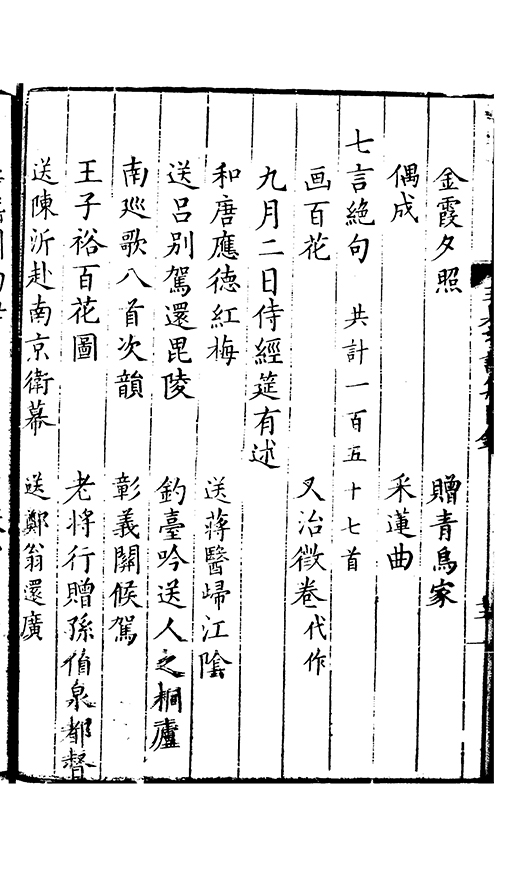 金霞夕照　贈青鳥家
偶成　采蓮曲
七言絕句　共計一百五十七首
画百花　又治徵卷代作
九月二日侍經筵有述
和唐應德紅梅　送蔣醫歸江陰
送呂别駕還毘陵　釣臺吟送人之桐廬
南廵歌八首次韻　彰義關候駕
王子裕百花圖　老將行贈孫伯泉都督
送陳沂赴南京衛幕　送鄭翁還廣